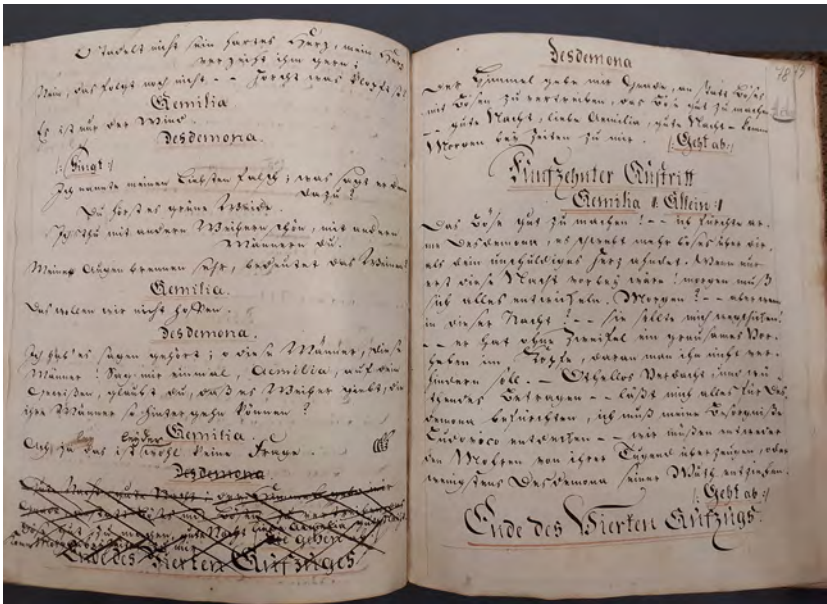 O tadelt nicht sein hartes Herz, mein Herz
verzeiht ihm gern;
Nein, das folgt noch nicht, -- Horcht was klopft
Aemilia
Es ist nur der Wind.
Desdemona.
/: Singt :/
Ich nannte meinen Liebsten falsch; was sagt er denn
dazu?
Du hörst es grüne Weide.
Ich thu mit andern Weibern schön, mit andern
Männern du.
Meine Augen brennen sehr, bedeutet das Weinen?
Aemilia.
Das wollen wir nicht hoffen.
Desdemona.
Ich hab' es sagen gehört; o diese Männer, diese
Männer! Sag mir einmal, Aemilia, auf dein
Gewißen, glaubst du, daß es Weiber giebt, die
ihre Männer so hintergehn können?
Aemilia.
leyder
Ach, ja das ist wohl keine Frage.
Desdemona
Gute Nacht, gute Nacht; der Himmel gebe mir
Böses mit Bösen zu
gut zu machen, gute Nacht liebe Aemilia gute Nacht
Morgen zu mir. Sie gehen
Ende des Vierten Aufzuges
Desdemona
Der Himmel gebe mir Gnade, an statt Böses
mit Bösen zu vertreiben, das Böse gut zu machen
-- gute Nacht, liebe Aemilia, gute Nacht - komm
Morgen bey Zeiten zu mir. /: Geht ab :/
Funfzehnter Auftritt
Aemilia /: Allein :/
Das Böse gut zu machen! -- ich fürchte ar-
me Desdemona, es schwebt mehr böses über dir,
als dein unschuldiges Herz ahndet. Wenn nur
erst diese Nacht vorbey wäre! morgen muß
sich alles entwickeln, Morgen? -- aber wenn
in dieser Nacht? -- sie sollte mich wegschicken!
-- er hat ohne Zweifel ein grausames Vor-
haben im Kopfe, daran man ihn nicht ver-
hindern soll. - Othellos Verdacht, und wü-
thendes Betragen -- läßt mich alles für Des-
demona befürchten, ich muß meine Besorgniße
Ludovico entdecken -- wir müßen entweder
den Mohren von ihrer Tugend überzeugen, oder
wenigstens Desdemona seiner Wuth entziehen.
/: Geht ab :/
Ende des Vierten Aufzugs.